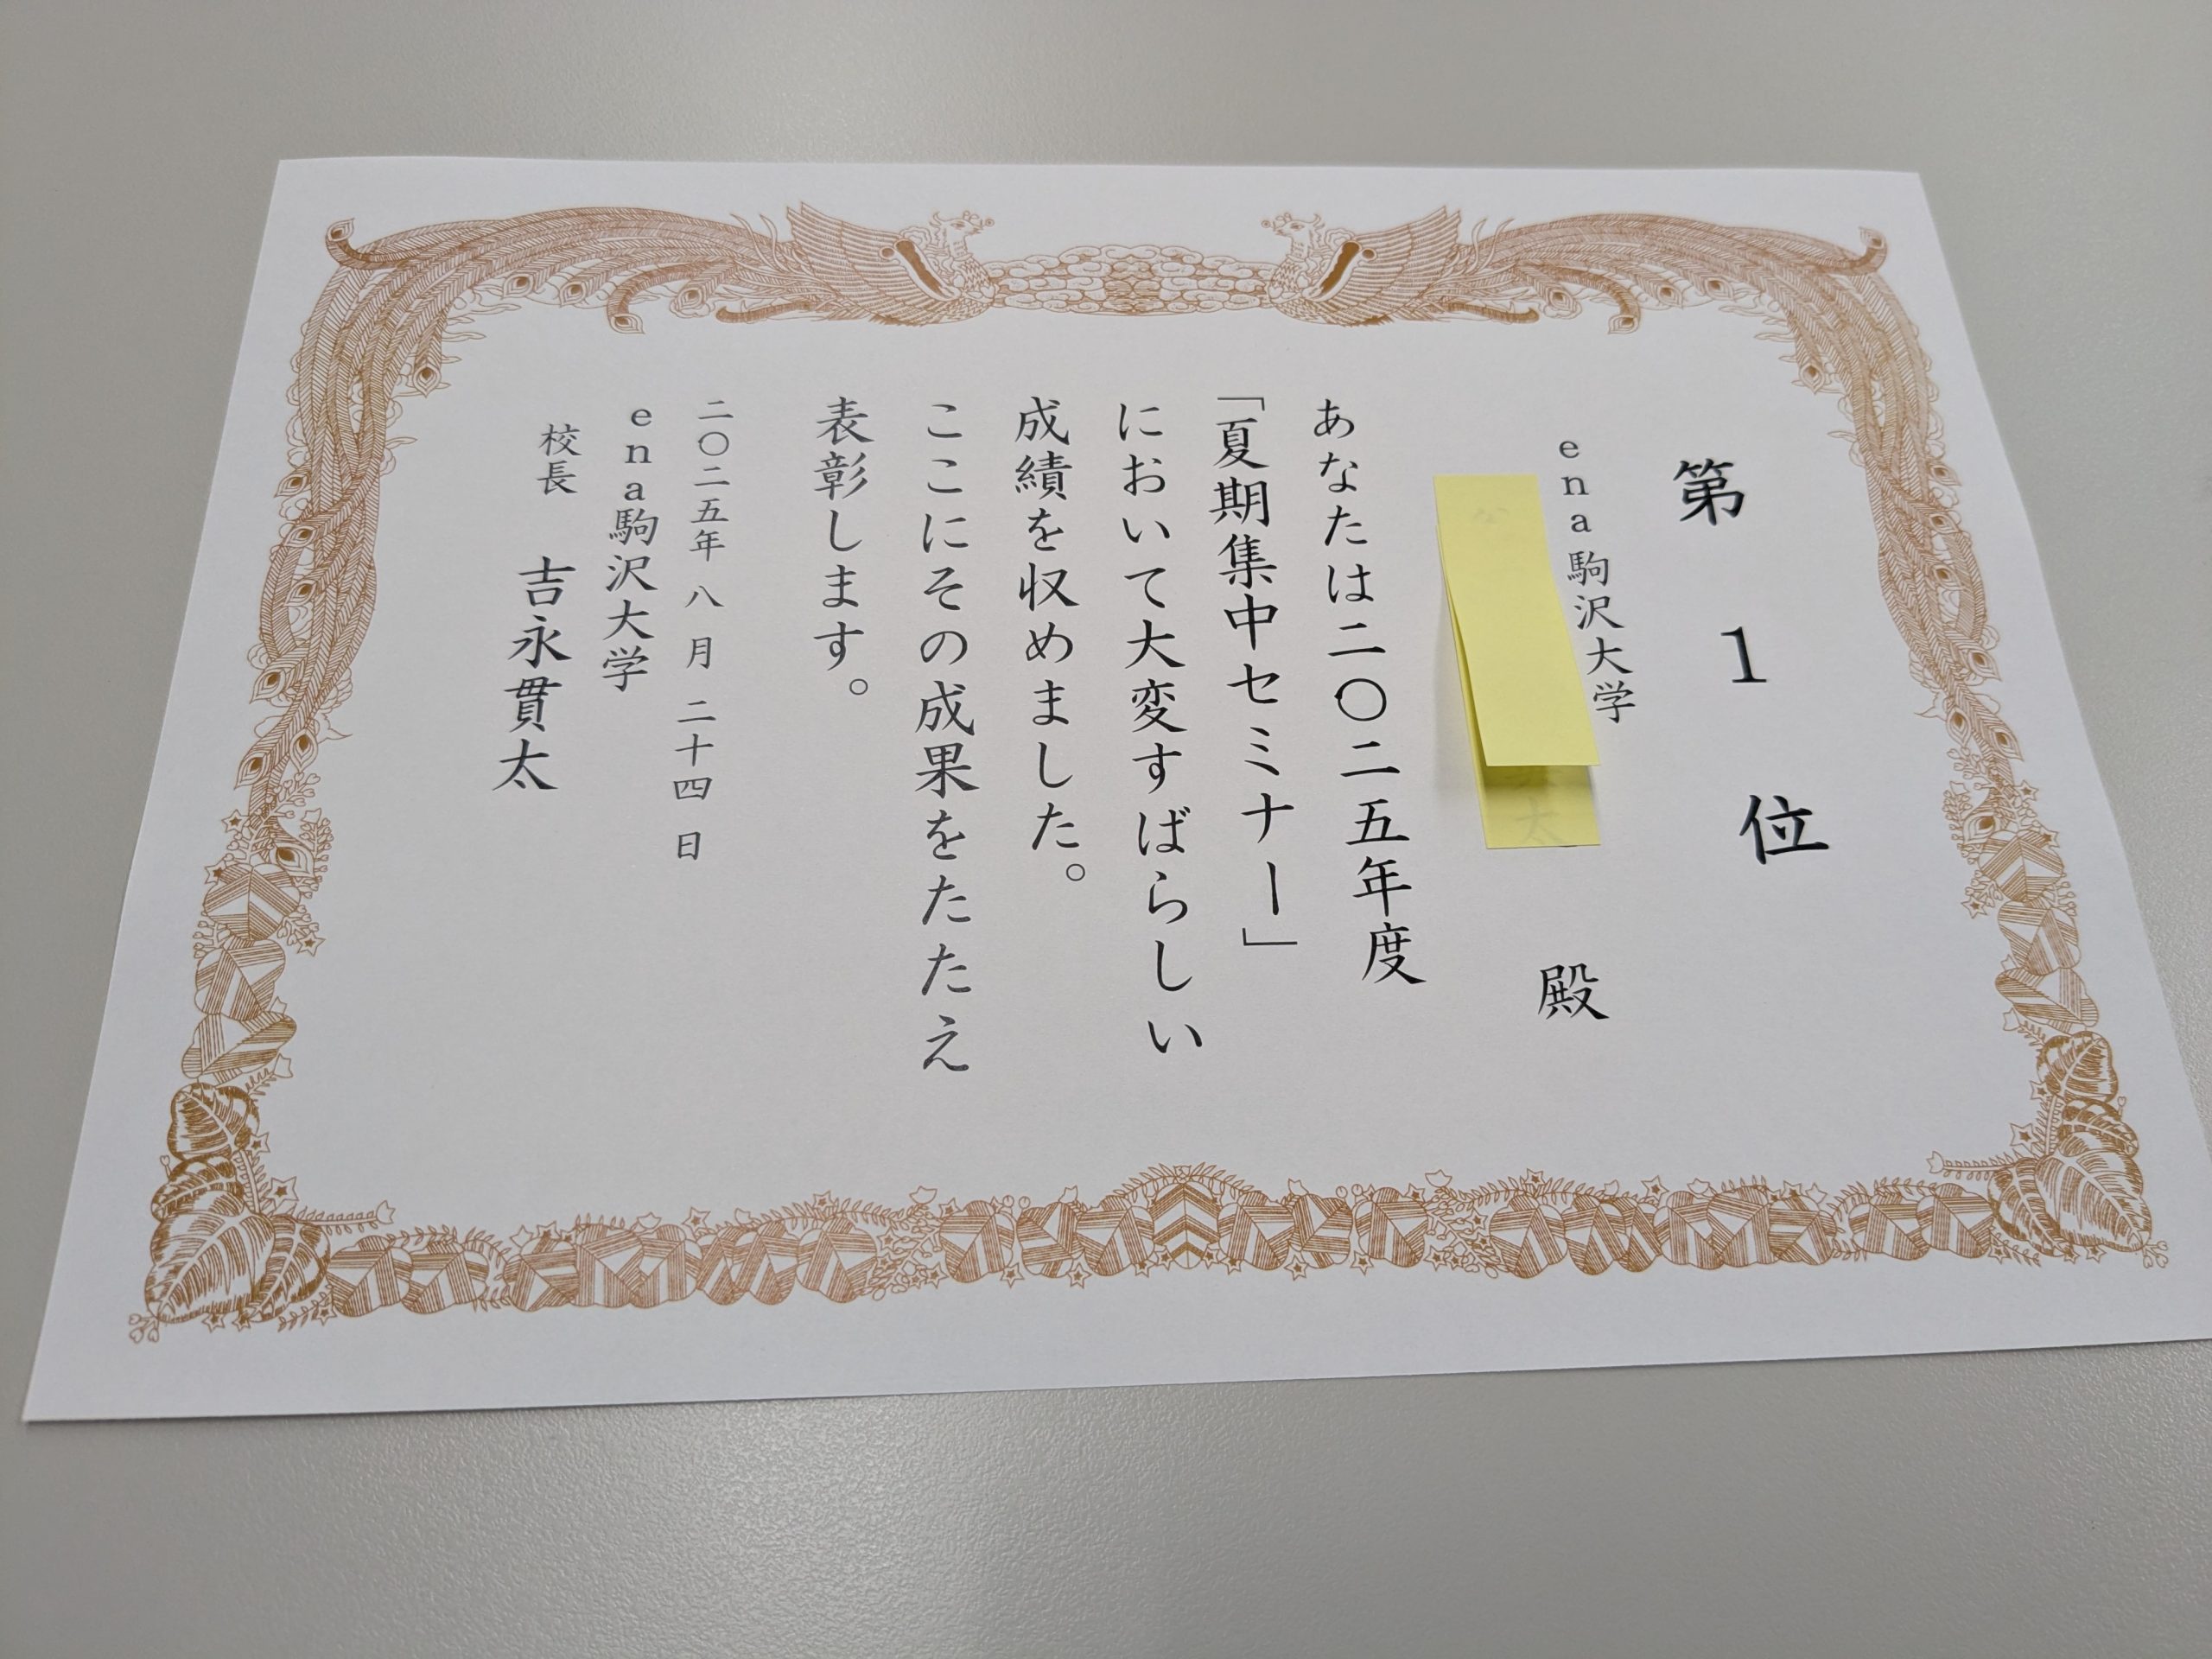 第１位
ena駒沢大学
殿
あなたは二〇二五年度
「夏期集中セミナー」
において大変すばらしい
成績を収めました。
ここにその成果をたたえ
表彰します。
二〇二五年八月二十四日
ena駒沢大学
校長 吉永貫太